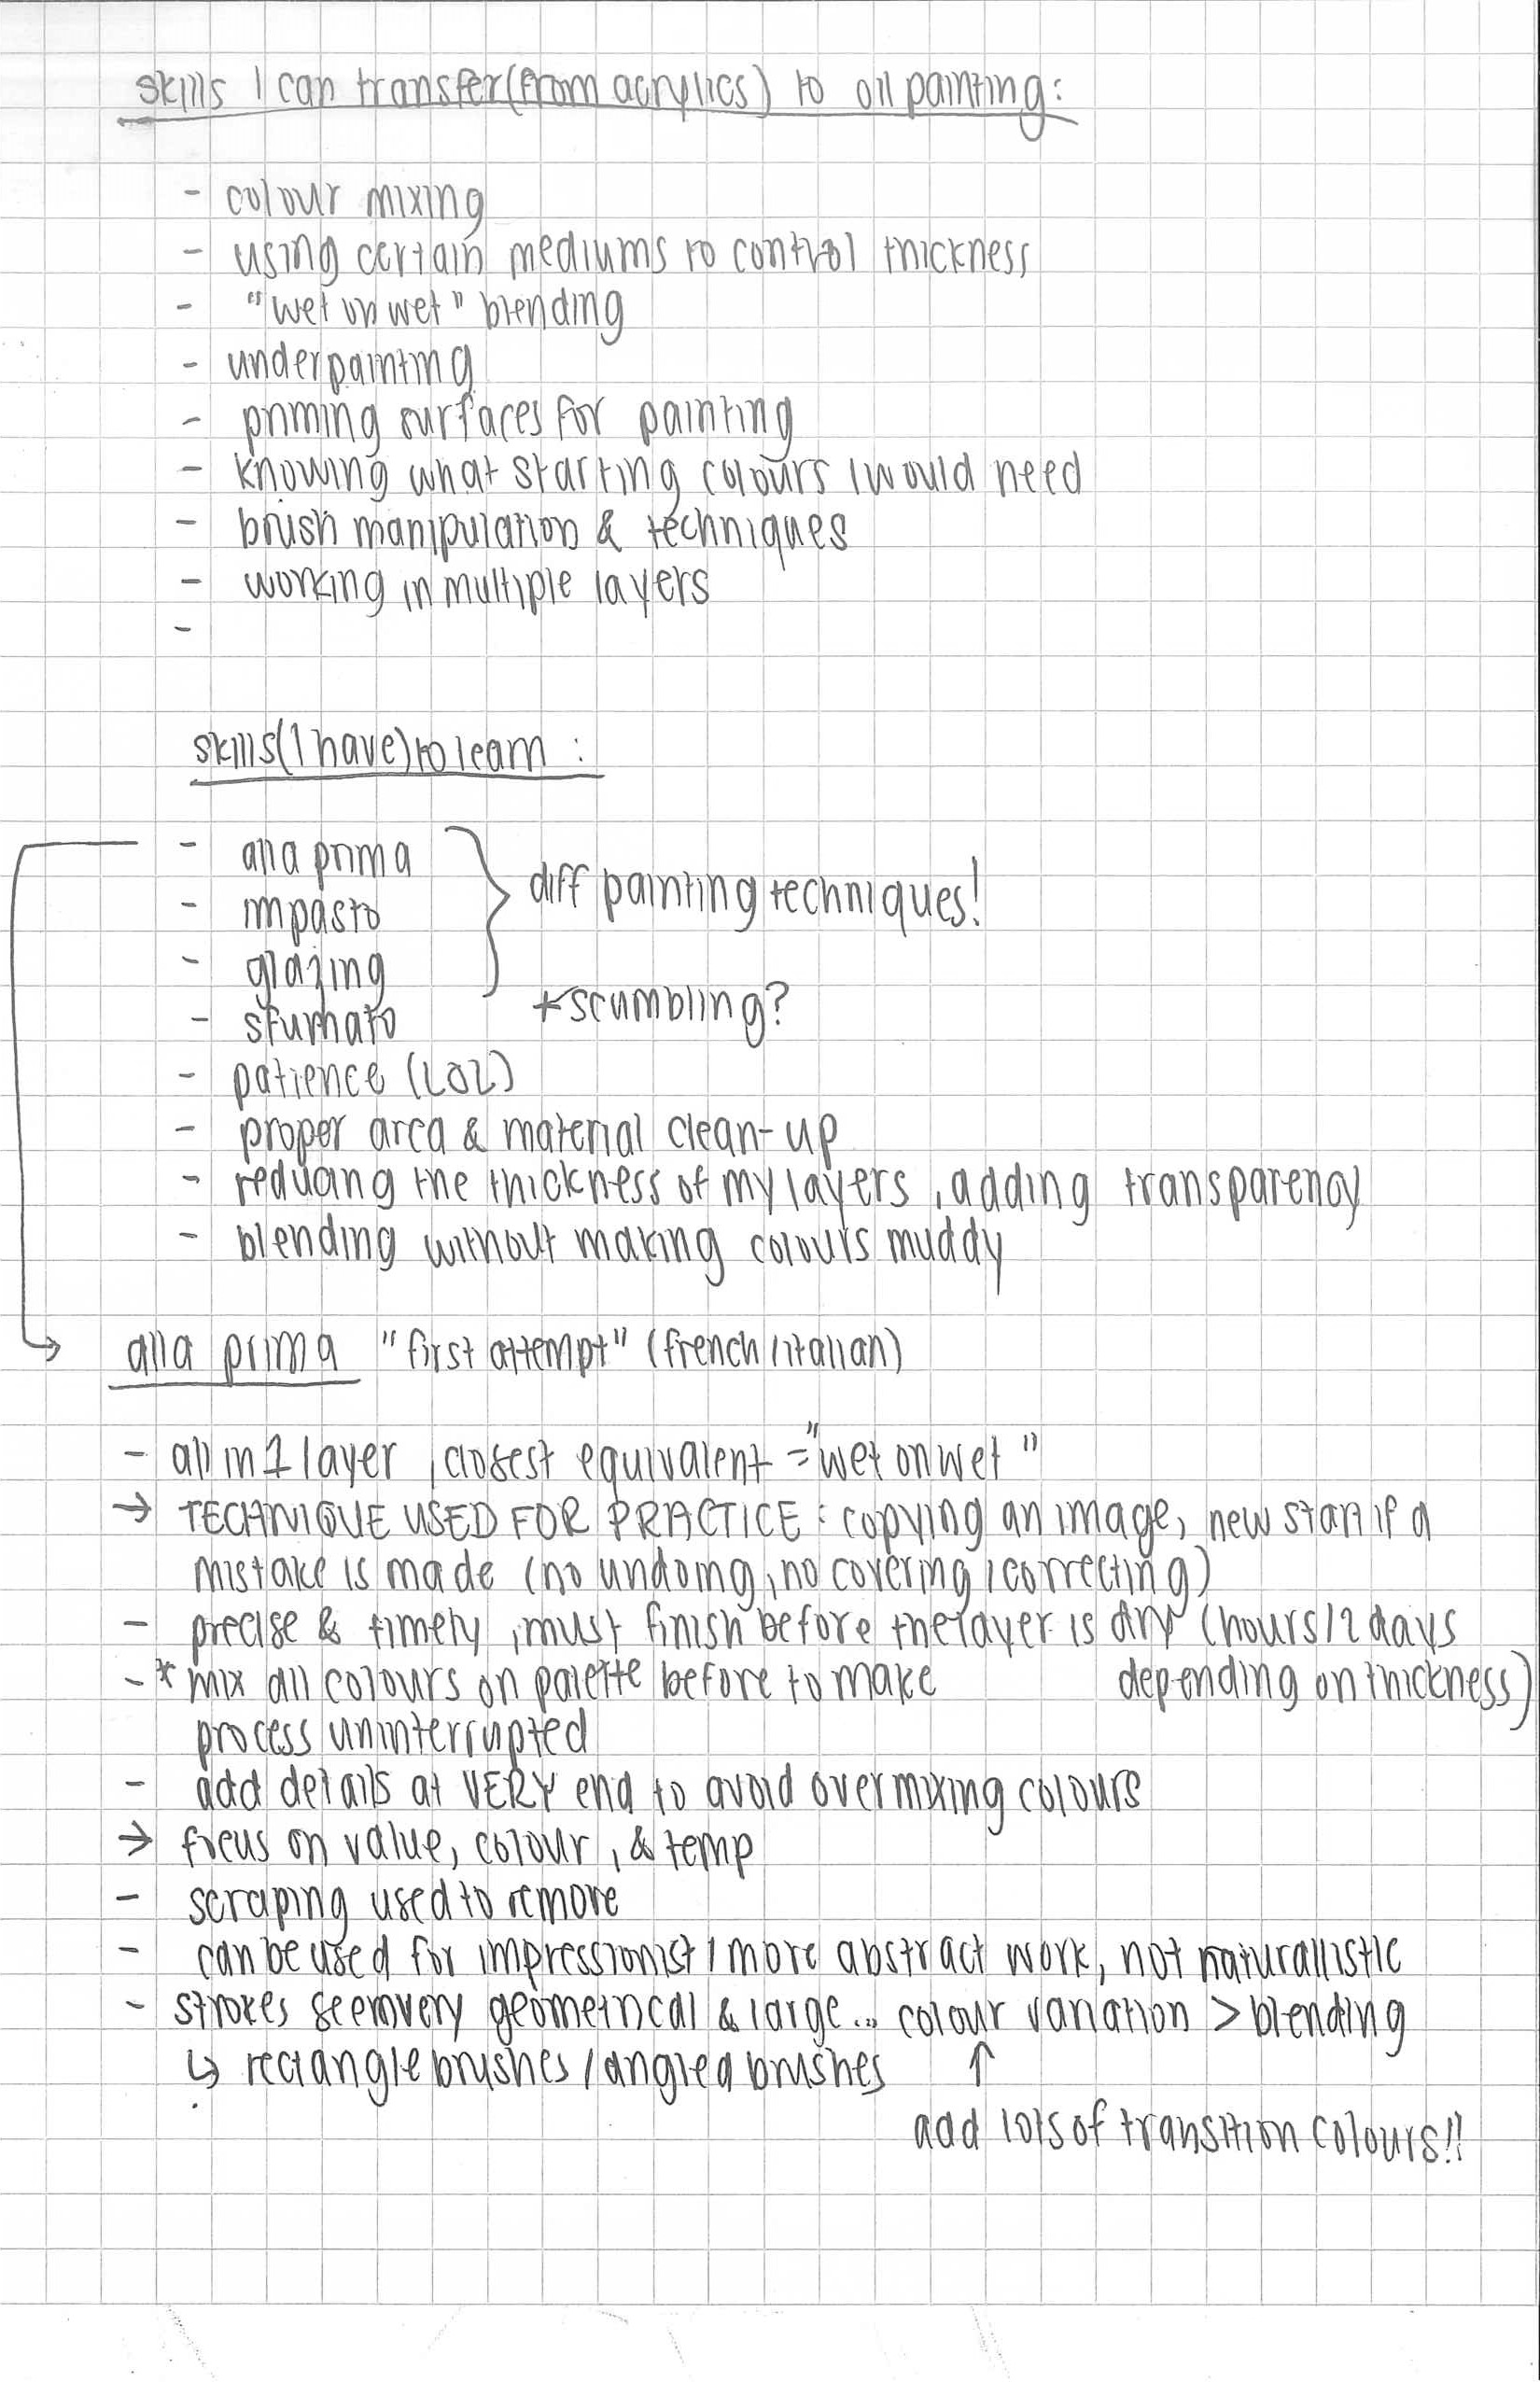 skills I can transfer (from acrylics) to oil painting:
- colour mixing
- using certain mediums to control thickness
- "wet on wet" blending
- underpainting
- priming surfaces for painting
- knowing what starting colours I would need
- brush manipulation & techniques
- working in multiple layers
-
skills (I have) to learn :
- alla prima
- impasto
- glazing
diff painting techniques!
- sfumato
* scumbling?
- patience (LOL)
- proper area & material clean-up
- reducing the thickness of my layers, adding transparency
- blending without making colours muddy
→ alla prima "first attempt" (french/italian)
- all in 1 layer, closest equivalent = "wet on wet"
→ TECHNIQUE USED FOR PRACTICE: copying an image, new start if a
mistake is made (no undoing, no covering/correcting)
- precise & timely, must finish before the layer is dry (hours/2 days
depending on thickness)
- * mix all colours on palette before to make
process uninterrupted
- add details at VERY end to avoid overmixing colours
→ focus on value, colour, & temp
- scraping used to remove
- can be used for impressionist/more abstract work, not naturallistic
- strokes seem very geometrical & large... colour variation > blending
↳ rectangle brushes/angled brushes ↑
add lots of transition colours!!